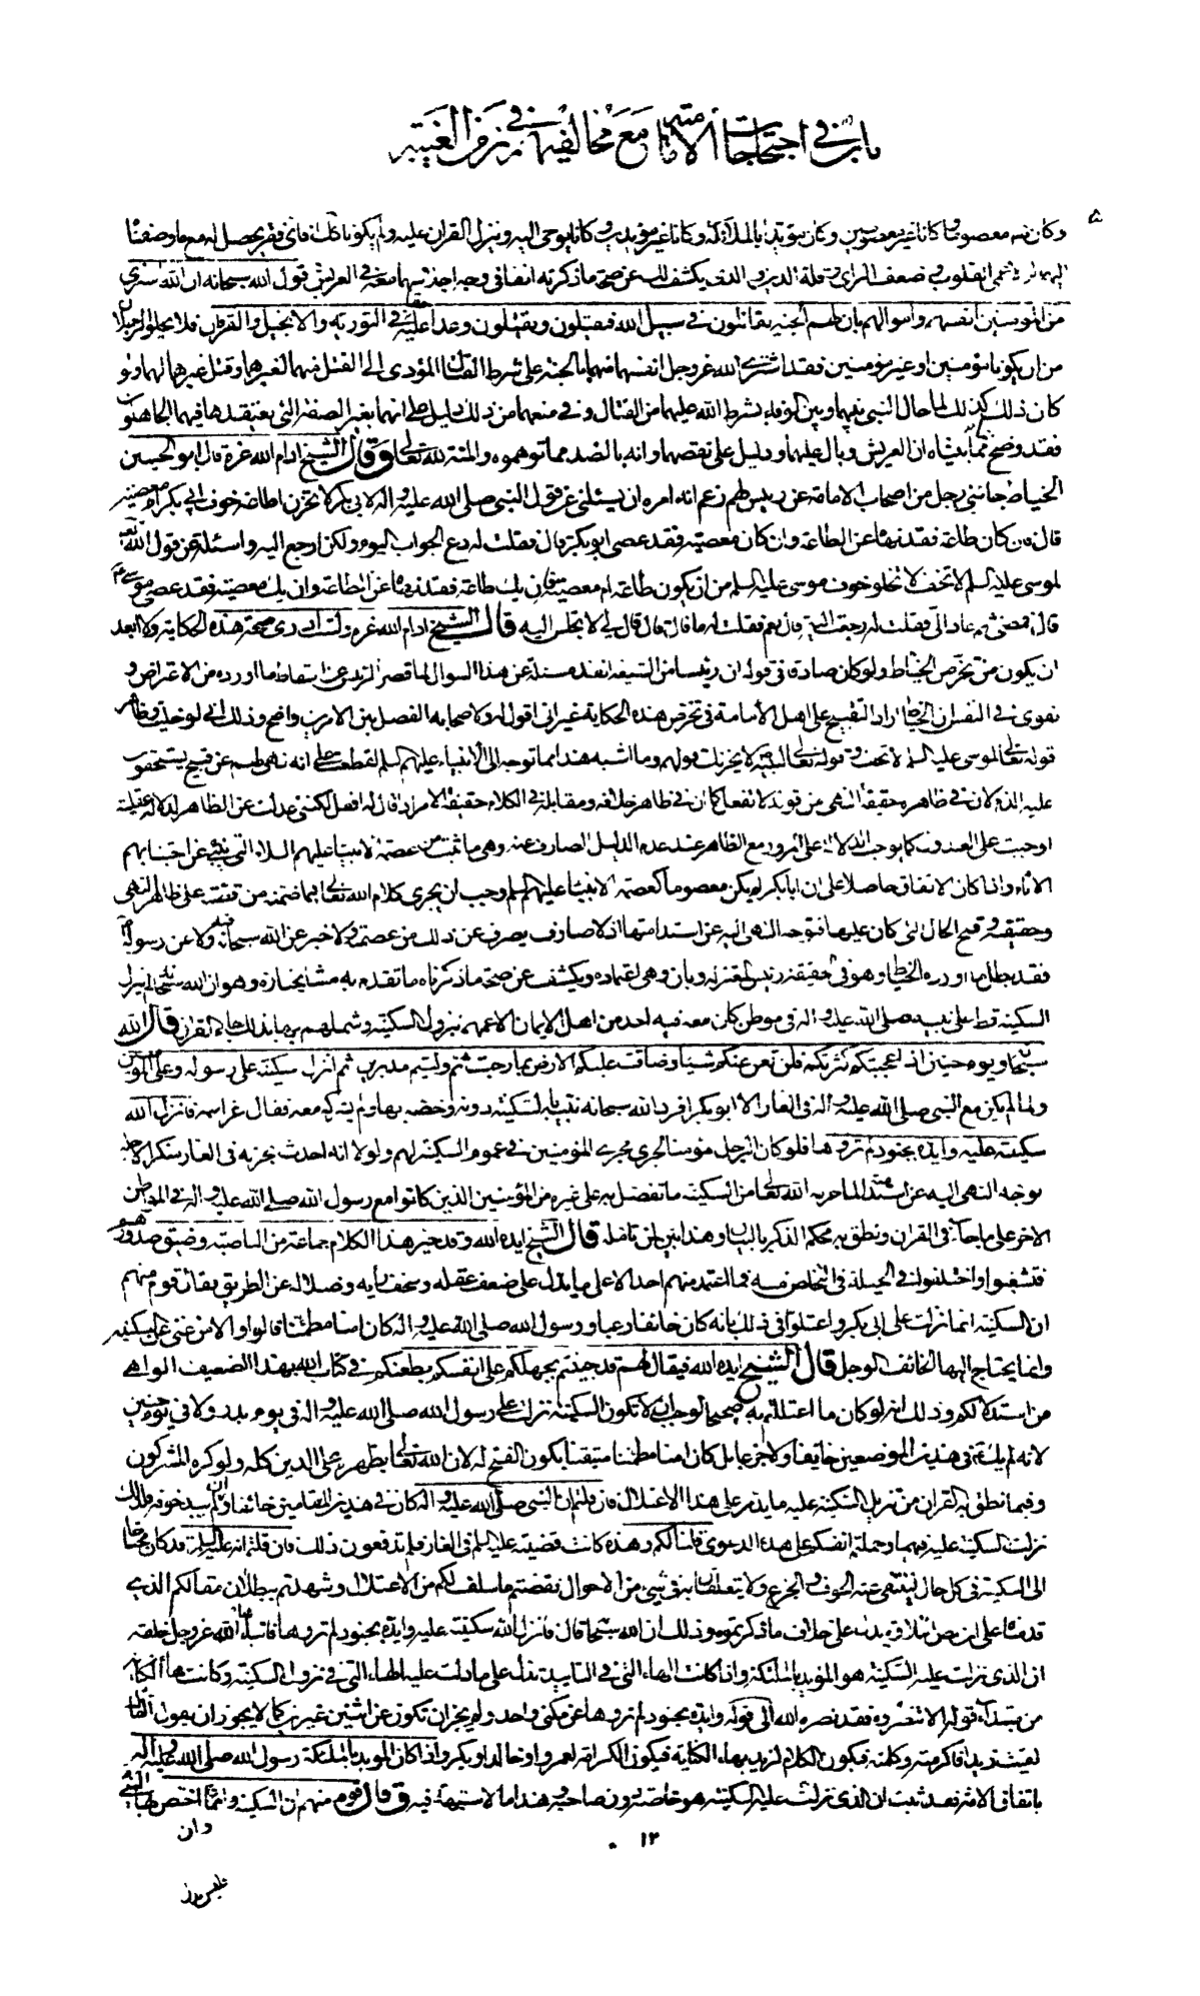 باب في احتجاجات الامامية مع مخالفيهم في زمن الغيبة
وكان معصوما وكانا غير معصومين وكان مؤيدا بالملائكة وكانا غير مؤيدين وكان يوحى اليه وينزل القرآن عليه ولم يكونا كذلك فاى فقر يحصل له مع ما وصفناه
اليهما لو لا عمى القلوب وضعف الراى وقلة الدين والذى يكشف لك عن صحة ما ذكرته انفا في وجه اجلاسهما معه في العريش قول الله سبحانه ان الله اشترى
من المؤمنين انفسهم واموالهم بان لهم الجنة يقاتلون في سبيل الله فيقتلون ويقتلون وعدا عليه حقا في التورية والانجيل والقرآن فلا يخلو الرجلان
من ان يكونا مؤمنين او غير مؤمنين فقد اشترى الله عز وجل انفسهما منهما بالجنة على شرط القتال المؤدى الى القتل منهما لغيرهما وقتل غيرهما لهما ولو
كان ذلك كذلك لما حال النبى بينهما وبين الوفاء بشرط الله عليهما من القتال وفي منعهما من ذلك دليل على انهما بغير الصفة التى يعتقدها فيهما الجاهلون
فقد وضح بما بيناه ان العريش وبال عليهما ودليل على نقصهما وانه بالضد مما توهموه والمنة لله تعالى وقال الشيخ ادام الله عزه قال ابو الحسين
الخياط جائنى رجل من اصحاب الامامة عن رئيس لهم زعم انه امره ان يسئلنى عن قول النبى صلى الله عليه واله لابى بكر لا تحزن اطاعة خوف ابى بكر ام معصية
قال فان كان طاعة فقد نهاه عن الطاعة وان كان معصية فقد عصى ابو بكر قال فقلت له دع الجواب اليوم ولكن ارجع اليه واسئله عن قول الله تعالى
لموسى عليه السلم لا تخف لا تخلو خوف موسى عليه السلم من ان يكون طاعة ام معصية فان يك طاعة فقد نهاه عن الطاعة وان يك معصية فقد عصى موسى ع
قال فمضى ثم عاد الى فقلت له رجعت اليه قال نعم فقلت له ما قال قال قال لى لا تجلس اليه قال الشيخ ادام الله عزه ولست ادرى صحة هذه الحكاية ولا ابعد
ان يكون من تخرص الخياط ولو كان صادقا في قوله ان رئيسا من الشيعة انفذ مسئلة عن هذا السؤال لما قصر الرئيس عن اسقاط ما اورده من الاعتراض و
يقوى في النفس ان الخياط اراد التقبيح على اهل الامامة في تخرص هذه الحكاية غير انى اقول له ولاصحابه الفصل بين الامرين واضح وذلك انى لو خليت وظاهر
قوله تعالى لموسى عليه السلم لا تخف وقوله تعالى لنبيه ص لا يحزنك قولهم وما اشبه هذا مما توجه الى الانبياء عليهم السلم لقطعت على انه نهى لهم عن قبيح يستحقون
عليه الذم لان في ظاهره حقيقة النهى من قوله لا تفعل كما ان في ظاهر خلافه ومقابله في الكلام حقيقة الامر اذا قال له افعل لكننى عدلت عن الظاهر لدلالة عقلية
اوجبت على العدول كما يوجب الدلالة على المرور مع الظاهر عند عدم الدليل الصارف عنه وهى ما ثبت من عصمة الانبياء عليهم السلام التى تنبئ عن اجتنابهم
الاثام واذا كان الاتفاق حاصلا على ان ابا بكر لم يكن معصوما كعصمة الانبياء عليهم السلم وجب ان يجرى كلام الله تعالى فيما ضمنه من قصته على ظاهر النهى
وحقيقته وقبح الحال التى كان عليها فتوجه النهى اليه عن استدامتها اذ لا صارف يصرف عن ذلك من عصمة ولا خبر عن الله سبحانه فيه ولا عن رسوله ص
فقد بطل ما اورده الخياط وهو في الحقيقة رئيس المعتزلة وبان وهى اعتماده ويكشف عن صحة ما ذكرناه ما تقدم به مشايخنا ره وهو ان الله سبحانه لم ينزل
السكينة قط على نبيه صلى الله عليه واله في موطن كان معه فيه احد من اهل الايمان الا عمهم بنزول السكينة وشملهم بها بذلك جاء القرآن قال الله
سبحانه ويوم حنين اذ اعجبتكم كثرتكم فلن تغن عنكم شيئا وضاقت عليكم الارض بما رحبت ثم وليتم مدبرين ثم انزل الله سكينته على رسوله وعلى المؤمنين
ولما لم يكن مع النبى صلى الله عليه واله في الغار الا ابو بكر افرد الله سبحانه نبيه بالسكينة دونه وخصه بها ولم يشركه معه فقال عز اسمه فانزل الله
سكينته عليه وايده بجنود لم تروها فلو كان الرجل مؤمنا لجرى مجرى المؤمنين في عموم السكينة لهم ولولا انه احدث بحزنه في الغار منكرا لاجله
توجه النهى اليه عن استدامته لما حرمه الله تعالى من السكينة ما تفضل به على غيره من المؤمنين الذين كانوا مع رسول الله صلى الله عليه واله في المواطن
الاخر على ما جاء في القرآن ونطق به محكم الذكر بالبيان وهذا بين لمن تامله قال الشيخ ايده الله وقد حير هذا الكلام جماعة من الناصبة وضيق صدورهم
فتشعبوا واختلفوا في الحيلة في التخلص منه فما اعتمد منهم احد الا على ما يدل على ضعف عقله وسخف رايه وضلاله عن الطريق فقال قوم منهم
ان السكينة انما نزلت على ابى بكر واعتلوا في ذلك بانه كان خائفا رعبا ورسول الله صلى الله عليه واله كان امنا مطمئنا قالوا والامن غنى عن السكينة
وانما يحتاج اليها الخائف الوجل قال الشيخ ايده الله فيقال لهم قد جنيتم بجهلكم على انفسكم بطعنكم في كتاب الله بهذا الضعيف الواهى
من استدلالكم وذلك انه لو كان ما اعتللتم به صحيحا لوجب ان لا تكون السكينة نزلت على رسول الله صلى الله عليه واله في يوم بدر ولا في يوم حنين
لانه لم يك في هذين الموضعين خائفا ولا جزعا بل كان امنا مطمئنا متيقنا بكون الفتح له لان الله تعالى يظهره على الدين كله ولو كره المشركون
وفيما نطق به القرآن من تنزيل السكينة عليه ما يدمر على هذا الاعتلال فان قلتم ان النبى صلى الله عليه واله كان في هذين المقامين خائفا وان لم يبد خوفه فلذلك
نزلت السكينة عليه فيهما وحملتم انفسكم على هذه الدعوى قلنا لكم وهذه كانت قضيته عليه السلم في الغار فلم تدفعون ذلك فان قلتم انه عليه السلم قد كان محتاجا
الى السكينة في كل حال لينتفى عنه الخوف والجزع ولا يتعلقان به في شئ من الاحوال نقضتم ما سلف لكم من الاعتلال وشهدتم ببطلان مقالكم الذى
قدمناه على ان نص التلاوة يدل على خلاف ما ذكرتموه وذلك ان الله سبحانه قال فانزل الله سكينته عليه وايده بجنود لم تروها فانبا الله عز وجل خلقه
ان الذى نزلت عليه السكينة هو المؤيد بالملائكة واذا كانت الهاء التى في التاييد تدل على ما دلت عليه الهاء التى في نزول السكينة وكانت هاء الكناية
من مبتداء قوله الا تنصروه فقد نصره الله الى قوله وايده بجنود لم تروها عن مكنى واحد ولم يجز ان تكون عن اثنين غيرين كما لا يجوز ان يقول القائل
لقيت زيدا فاكرمته وكلمته فيكون الكلام لزيد بهاء الكناية فيكون الكرامة لعمرو او خالد او بكر واذا كان المؤيد بالملائكة رسول الله صلى الله عليه واله
باتفاق الامة فقد ثبت ان الذى نزلت عليه السكينة هو خاصة دون صاحبه وهذا ما لا شبهة فيه وقال قوم منهم ان السكينة وانما اختص بها النبى
وان
١٢